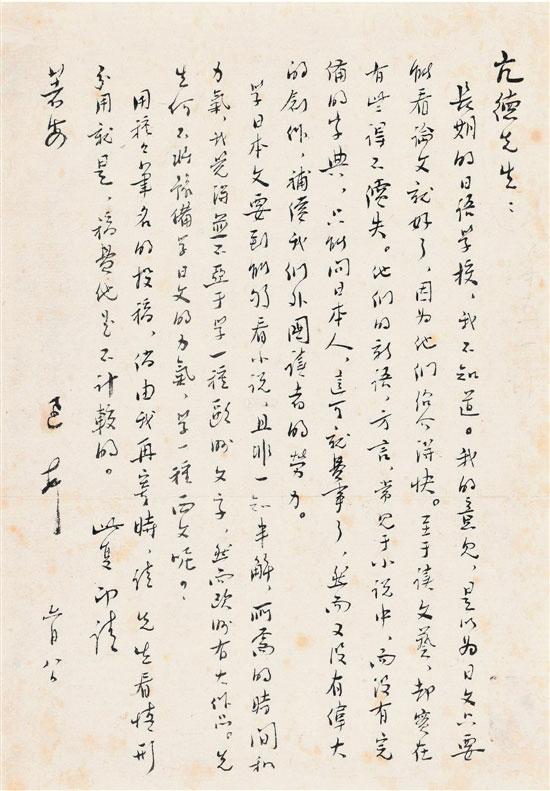 亢德先生：
長期的日語學校，我不知道。我的意見，是以為日文只要
能看論文就好了，因为他們紹介得快。至于讀文藝，却實在
有些得不償失。他們的新語，方言，常見于小說中，而沒有完
備的字典，只能問日本人，這可就費事了，然而又沒有偉大
的創作，補償我們外國讀者的勞力。
學日本文要到能夠看小說，且非一知半解，所需的時間和
力氣，我覺得並不亞于學一種歐洲文字，然而欧洲有大作品。先
生何不將豫備學日文的力氣，學一種西文呢？
用種々筆名的投稿，倘由我再寄時，請 先生看情形
分用就是，稿費他是不計較的。 此复 即請
著安
迅 上 六月八日